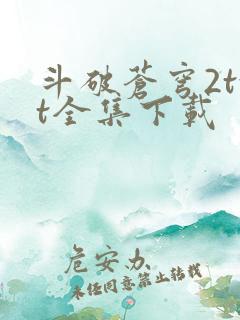 斗破苍穹2t
t全集下载
危安办
未经同意禁止转载